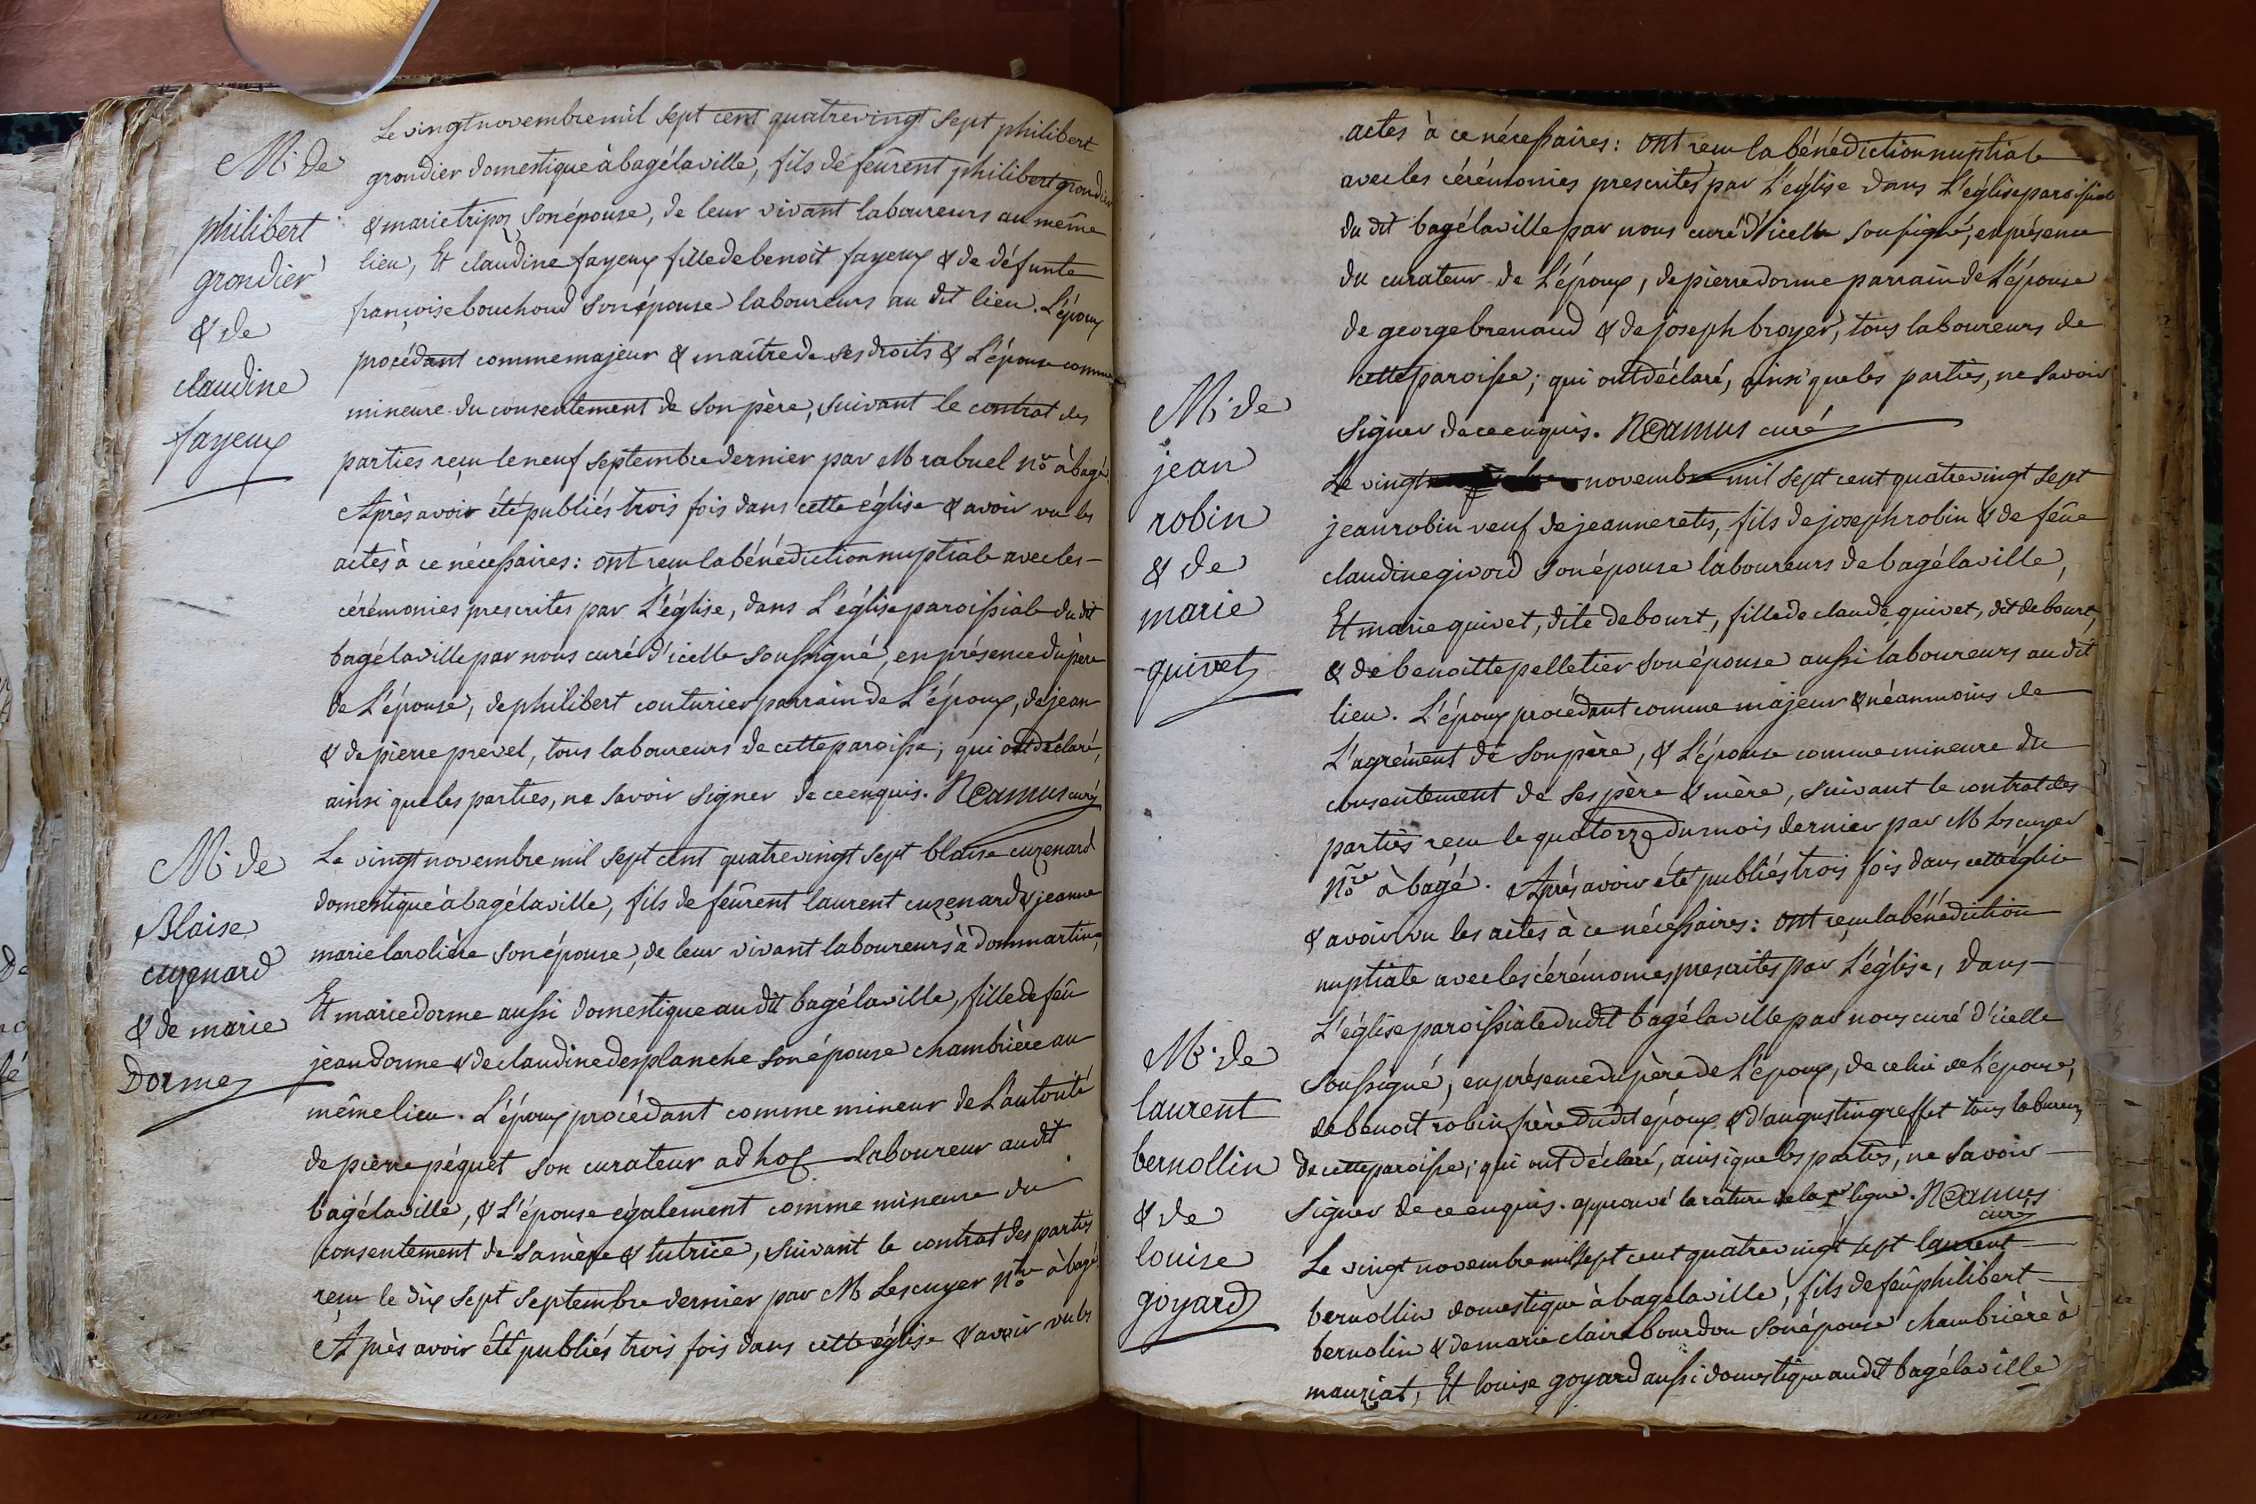 Mr. de
philibert
grondier
& de
claudine
fayeux
Le vingt novembre mil sept cent quatrevingt sept philibert
grondier domestique à bagé la ville, fils de feûrent philibert grondier
& marie tripoz son épouse, de leur vivant laboureurs au même
lieu, Et claudine fayeux fille de benoit fayeux & de défunte
françoise bouchoud son épouse laboureurs au dit lieu. L'époux
procédant comme majeur & maître de ses droits & L'épouse comme
mineure du consentement de son père, suivant le contrat des
parties reçu le neuf septembre dernier par M rabuel nore à bagé
Après avoir été publiés trois fois dans cette église & avoir vu les
actes à ce nécessaires: ont reçu la bénédiction nuptiale avec les
cérémonies prescrites par L'église, dans L'église paroissiale du dit
bagé la ville par nous curé d'icelle soussigné, en présence du père
de L'épouse, de philibert couturier parrain de L'époux, de jean
& de pierre prevel, tous laboureurs de cette paroisse; qui ont déclaré,
ainsi que les parties, ne savoir signer de ce enquis. Neamus curé
Mr. de
Blaise
cuzenard
& de marie
Dorme
Le vingt novembre mil sept cent quatrevingt sept blaise cuzenard
domestique à bagé la ville, fils de feûrent laurent cuzenard & jeanne
marie larolière son épouse, de leur vivant laboureurs à dommartin,
Et marie dorme aussi domestique au dit bagé la ville, fille de feû
jean dorme & de claudine desplanche son épouse chambrière au
même lieu. L'époux procédant comme mineur de L'autorité
de pierre péquet son curateur ad hoc laboureur au dit
bagé la ville, & L'épouse également comme mineure du
consentement de sa mère & tutrice, suivant le contrat des parties
reçu le dix sept septembre dernier par M Lescuyer nore à bagé
Après avoir été publiés trois fois dans cette église & avoir vu les
actes à ce nécessaires: ont reçu la bénédiction nuptiale
avec les cérémonies prescrites par L'église dans L'église paroissiale
du dit bagé la ville par nous curé d'icelle soussigné, en présence
du curateur de L'époux, de pierre dorme parrain de L'épouse
de george brenaud & de joseph broyer, tous laboureurs de
cette paroisse; qui ont déclaré, ainsi que les parties, ne savoir
signer de ce enquis. Neamus curé
Mr. de
jean
robin
& de
marie
quivet
Le vingt novembre mil sept cent quatrevingt sept
jean robin veuf de jeanne retis, fils de joseph robin & de feûe
claudine givord son épouse laboureurs de bagé la ville,
Et marie quivet, dite debourt, fille de claude quivet, dit debourt,
& de benoitte pelletier son épouse aussi laboureurs au dit
lieu. L'époux procédant comme majeur & néanmoins de
L'agrément de son père, & L'épouse comme mineure du
consentement de ses père & mère, suivant le contrat des
parties reçu le quatorze du mois dernier par M Lescuyer
nore à bagé. Après avoir été publiés trois fois dans cette église
& avoir vu les actes à ce nécessaires: ont reçu la bénédiction
nuptiale avec les cérémonies prescrites par L'église, dans
L'église paroissiale du dit bagé la ville par nous curé d'icelle
soussigné, en présence du père de L'époux, de celui de L'épouse,
de benoit robin frère du dit époux & d'augustin greffet tous laboureurs
de cette paroisse; qui ont déclaré, ainsi que les parties, ne savoir
signer de ce enquis. approuvé la rature de la 1re ligne. Neamus
curé
Mr. de
laurent
bernollin
& de
louise
goyard
Le vingt novembre mil sept cent quatrevingt sept laurent
bernollin domestique à bagé la ville, fils de feû philibert
bernolin & de marie claire bourdon son épouse chambrière à
manziat, Et louise goyard aussi domestique au dit bagé la ville